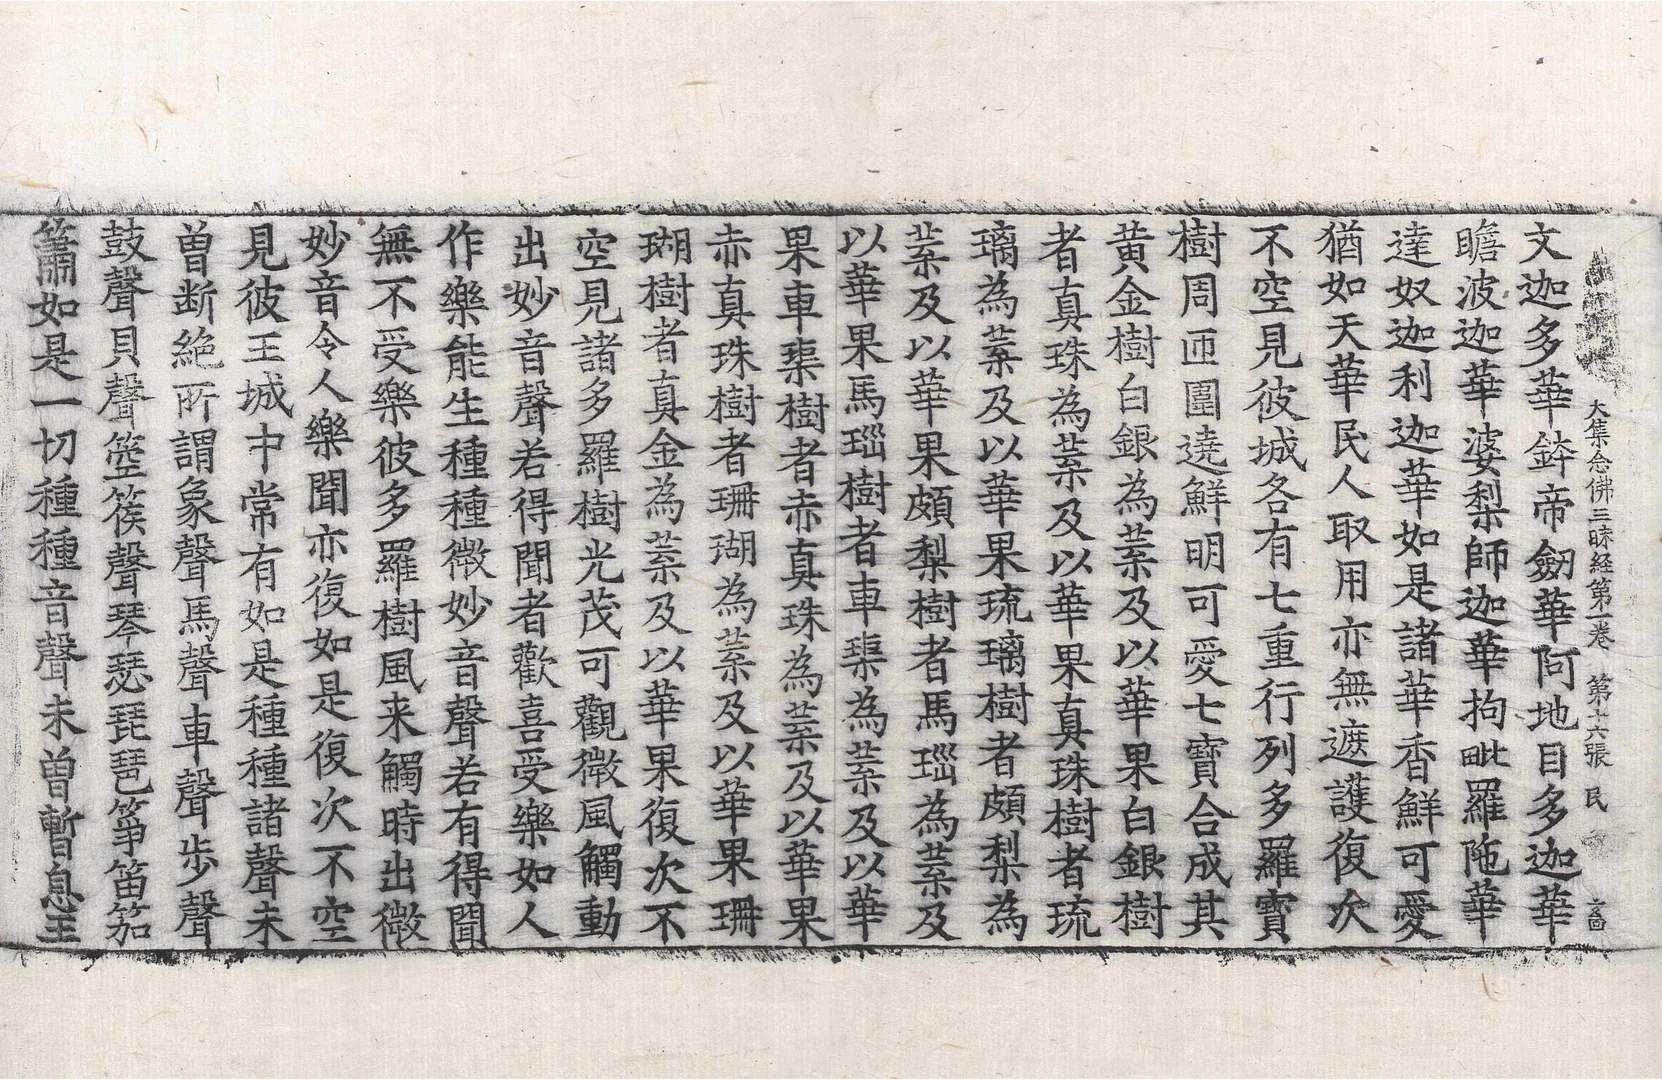 大集念佛三昧経第一巻　第十六張　民
文迦多華鉾帝劒華阿地目多迦華
瞻波迦華婆梨師迦華拘毗羅陁華
達奴迦利迦華如是諸華香鮮可愛
猶如天華民人取用亦無遮護復次
不空見彼城各有七重行列多羅寳
樹周匝圍遶鮮明可愛七寳合成其
黄金樹白銀為葉及以華果白銀樹
者真珠為葉及以華果真珠樹者琉
璃為葉及以華果琉璃樹者頗梨為
葉及以華果頗梨樹者馬瑙為葉及
以華果馬瑙樹者車𤦲為葉及以華
果車𤦲樹者赤真珠為葉及以華果
赤真珠樹者珊瑚為葉及以華果珊
瑚樹者真金為葉及以華果復次不
空見諸多羅樹光茂可觀微風觸動
出妙音聲若得聞者歡喜受樂如人
作樂能生種種微妙音聲若有得聞
無不受樂彼多羅樹風来觸時出微
妙音令人樂聞亦復如是復次不空
見彼王城中常有如是種種諸聲未
曽断絶所謂象聲馬聲車聲歩聲
鼓聲貝聲箜篌聲琴瑟琵琶箏笛笳
簫如是一切種種音聲未曽暫息王